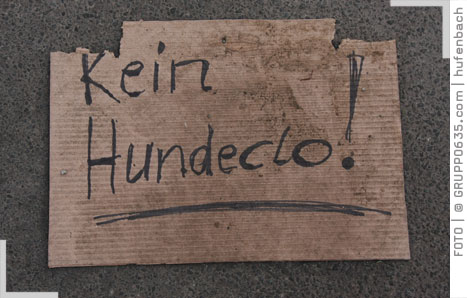 Kein
Hundeclo!
FOTO | © GRUPPO635.com | hufenbach